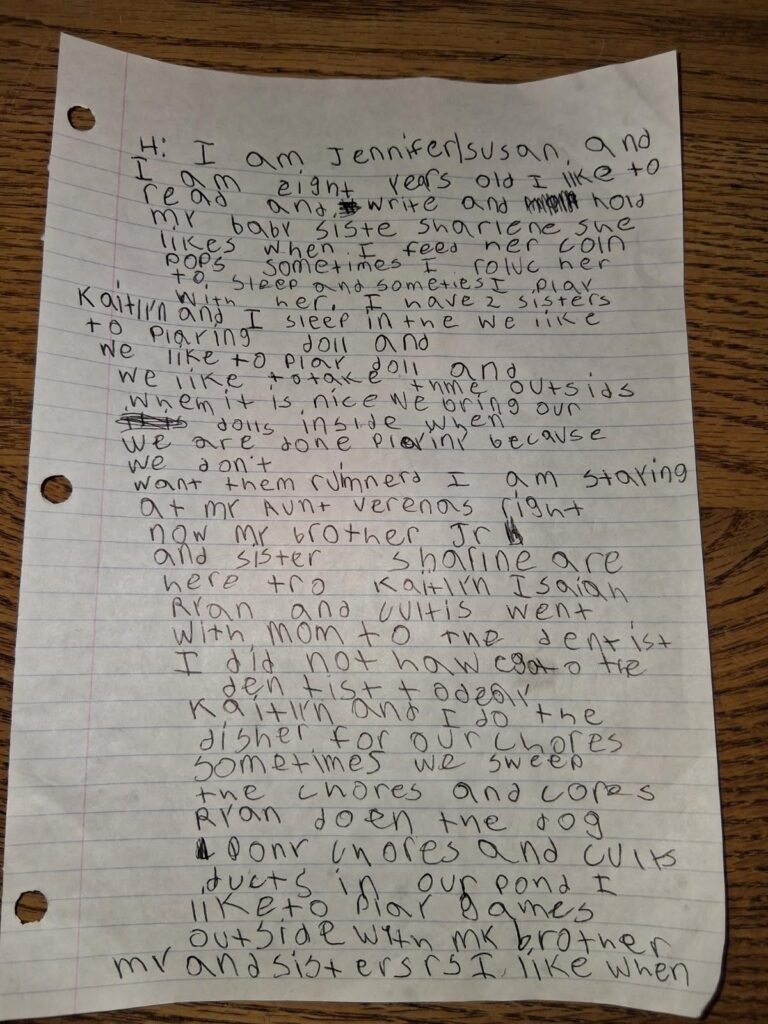 Hi: I am Jennifer/susan, and
I am eight years old I like to
read and write and hold
my baby siste sharlene she
likes when I feed her coin
pops sometimes I her
to sleep and someties I play
with her. I have 2 sisters
Kaitlyn and I sleep in the we like
to playing doll and
we like to play doll and
we like to take thme outsids
when it is nice we bring our
dolls inside when
we are done because
we don't
want them I am staying
at my Aunt verenas right
now my brother Jr
and sister sharine are
here tro Kaitlyn Isaiah
Ryan and cultis went
with mom to the dentist
I did not to the
dentist
Kaitlyn and I do the
disher for our chores
sometimes we sweep
the chores and cores
Ryan doen the dog
chores and cults
ducts in our pond I
like to play games
outside with mk brother
my and sistersrs I like when